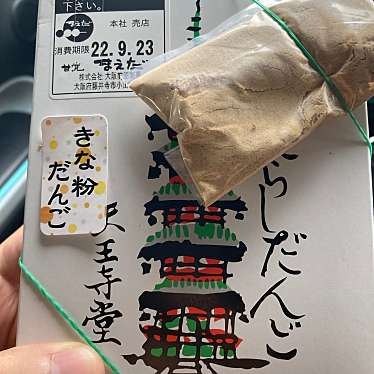 下さい。
まえだ
本社 売店
消費期限 22.9.23
甘党 まえだ
株式会社 大阪前田製菓
大阪府藤井寺市小山
きな粉
だんご
らしだんご
天王寺堂